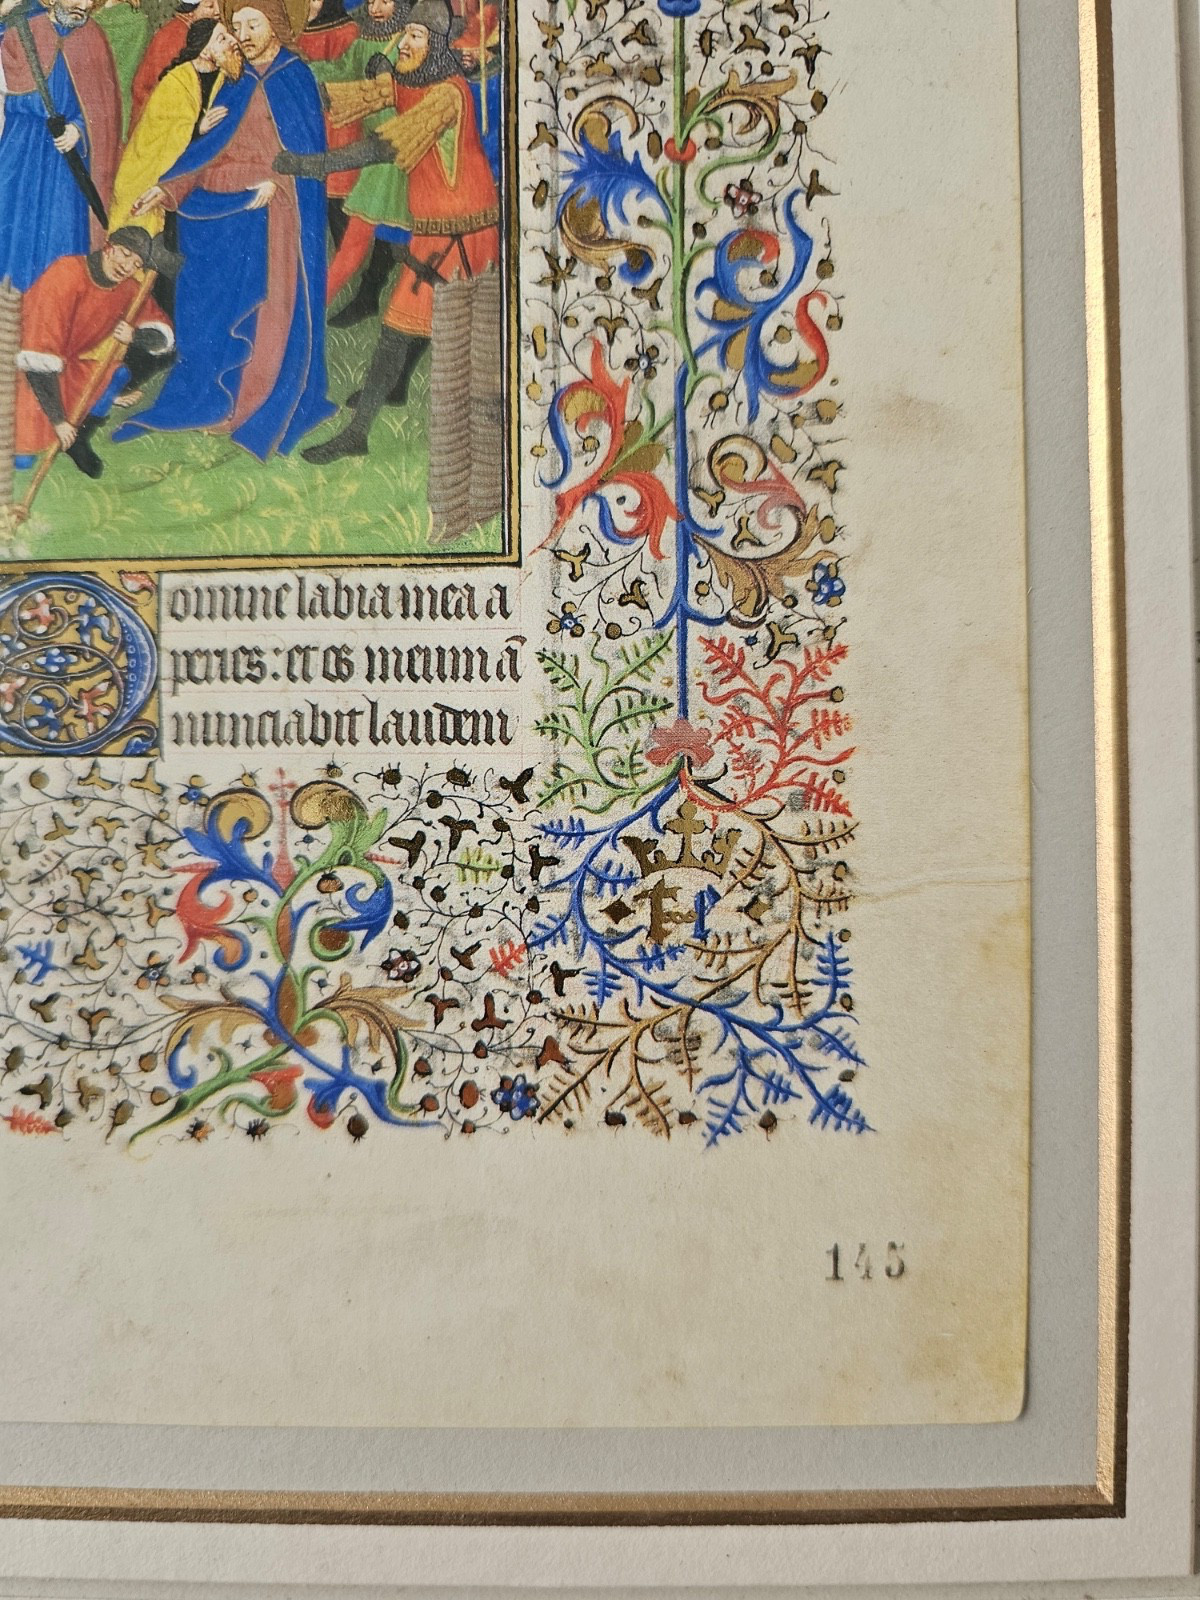 Domine labia mea a
peries: et os meum ā
nunciabit laudem
145